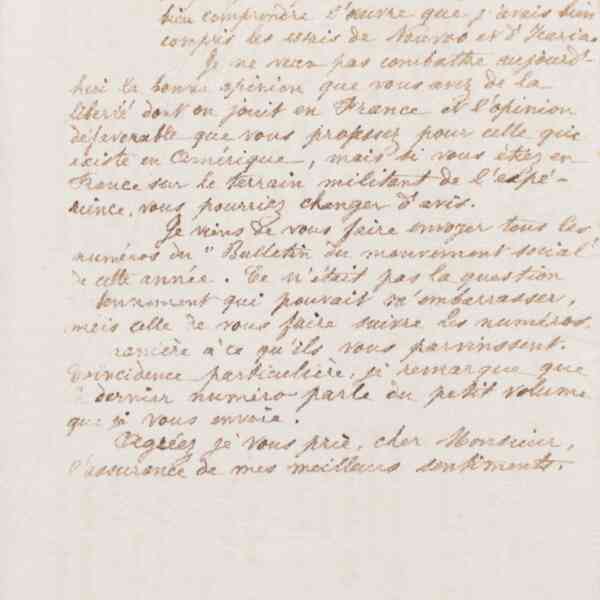 bien comprendre l'œuvre que j'avais bien
compris les essais de Nauvoo et d'Icarie.
Je ne veux pas combattre aujourd'-
hui la bonne opinion que vous avez de la
liberté dont on jouit en France et l'opinion
défavorable que vous professez pour celle qui
existe en Amérique, mais si vous étiez en
France sur le terrain militant de l'expé-
rience, vous pourriez changer d'avis.
Je viens de vous faire envoyer tous les
numéros du "Bulletin du mouvement social"
de cette année. Ce n'était pas la question
qui pouvait m'embarrasser,
mais celle de vous faire suivre les numéros
manière à ce qu'ils vous parvinssent.
Coincidence particulière, je remarque que
dernier numéro parle du petit volume
que je vous envoie.
Agréez je vous prie, cher Monsieur,
l'assurance de mes meilleurs sentiments.